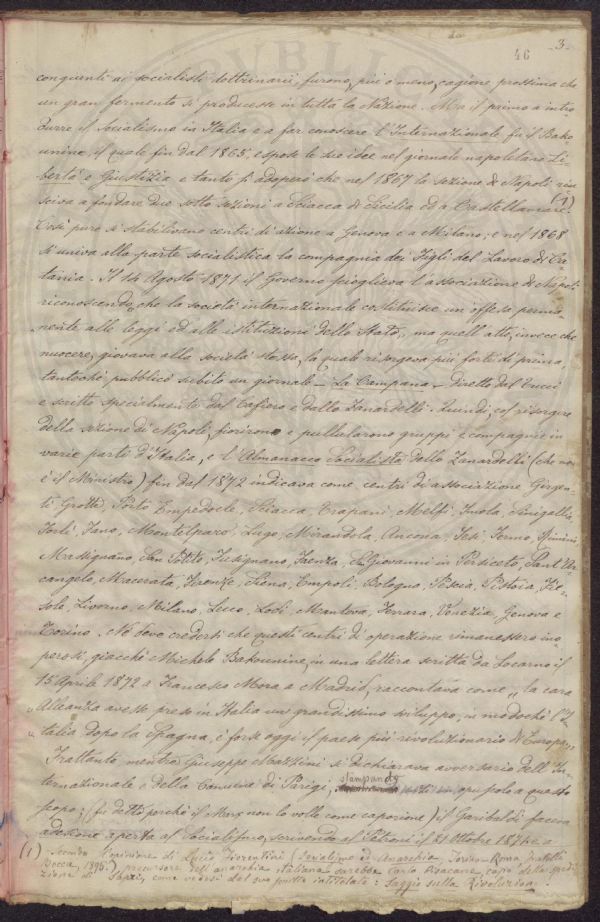 46
3
conquenti ai socialisti dottrinarii, furono, più o meno, cagione prossima che
un gran fermento si producesse in tutta la Nazione. Ma il primo a intro-
durre il Socialismo in Italia e a far conoscere l'Internazionale fu il Bak-
ounine, il quale fin dal 1865, espose le sue idee nel giornale napoletano Li-
bertà e Giustizia e tanto si adoperò che nel 1867 la sezione di Napoli riu
sciva a fondare due sotto sezioni a Sciacca di Sicilia ed a Castellamare. (1)
Così pure si stabilivano centri di azione a Genova e a Milano; e nel 1868
si univa alla parte socialistica la compagnia dei Figli del Lavoro di Ca-
tania. Il 14 Agosto 1871 il Governo scioglieva l'associazione di Napoli
riconoscendo che la società internazionale costituisce un offesa perma-
nente alle leggi ed alle istituzioni dello Stato, ma quell'atto, invece che
nuocere, giovava alla società stessa, la quale risorgeva più forte di prima,
tantochè pubblicò subito un giornale - La Campana - diretto dal Tucci
e scritto specialmente dal Cafiero e dallo Zanardelli. Quindi, col risorgere
della sezione di Napoli, fiorirono e pullularono gruppi e compagnie in
varie parti d'Italia, e l'Almanacco Socialista dello Zanardelli (che non
è il Ministro) fin dal 1872 indicava come centri di associazione Girgen-
ti Grotte, Porto Empedocle, Sciacca, Trapani, Melfi, Imola, Sinigallia,
Forlì, Fano, Montelparo, Lugo, Mirandola, Ancona, Jesi, Fermo, Rimini,
Massignano, San Potito, Fusignano, Faenza, S. Giovanni in Persiceto, Sant'Ar-
cangelo, Macerata, Firenze, Siena, Empoli, Bologna, Pescia, Pistoia, Fie-
sole, Livorno, Milano, Lecco, Lodi, Mantova, Ferrara, Venezia, Genova e
Torino. Nè deve credersi che questi centri di operazione rimanessero ino-
perosi, giacchè Michele Bakounine, in una lettera scritta da Locarno il
15 Aprile 1872 a Francesco Mora a Madrid, raccontava come „ la cara
„ Alleanza avesse preso in Italia un grandissimo sviluppo, in modochè l'I-
„ talia dopo la Spagna, è forse oggi il paese più rivoluzionario di Europa„.
Frattanto mentre Giuseppe Mazzini si dichiarava avversario dell'In-
ternazionale e della Comune di Parigi, stampando un opuscolo a questo
scopo; (fu detto perchè il Marx non lo volle come caporione) il Garibaldi faceva
adesione aperta al Socialismo, scrivendo al Petroni il 21 Ottobre 1871 e a
(1) Secondo l'opinione di Lucio Fiorentini (Socialismo ed Anarchia, Torino-Roma, fratelli
Bocca, 1895) precursore dell'anarchia italiana sarebbe Carlo Pisacane, capo della spedi-
zione di Sapri, come vedesi dal suo scritto intitolato: Saggio sulla Rivoluzione.